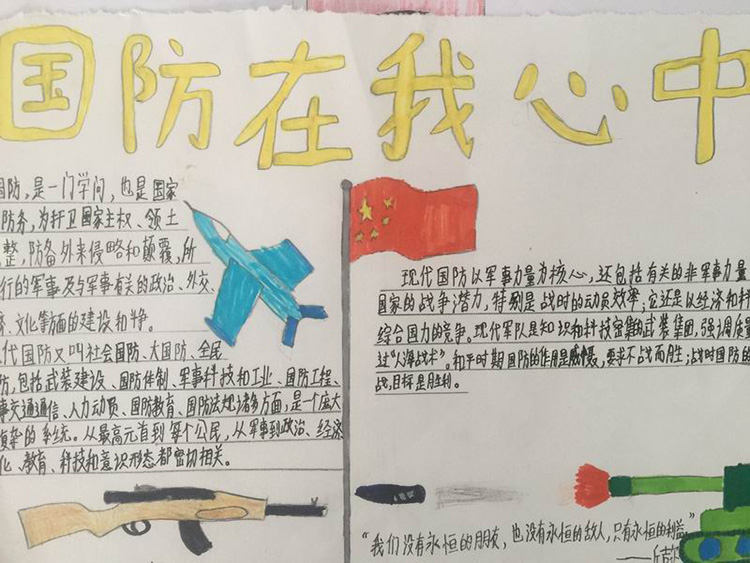 国防在我心中
国防，是一门学问，也是国家
防务，为扞卫国家主权、领土
整，防备外来侵略和颠覆，所
行的军事及与军事有关的政治、外交、
文化等方面的建设和争。
代国防又叫社会国防、大国防、全民
防，包括武装建设、国防体制、军事科技和工业、国防工程、
事交通通信、人力动员、国防教育、国防法规诸多方面，是一个庞大
复杂的系统。从最高元首到每个公民，从军事到政治、经济
化、教育、科技和意识形态都密切相关。
现代国防以军事力量为核心，还包括有关的非军事力量
国家的战争潜力，特别是战时的动员效率；它还是以经济和科
综合国力的竞争。现代军队是知识和科技密集的武装集团，强调质量
过"人海战术"。和平时期国防的作用是威慑，要求不战而胜；战时国防的
战，目标是胜利。
"我们没有永恒的朋友，也没有永恒的敌人，只有永恒的利益"
——丘吉尔